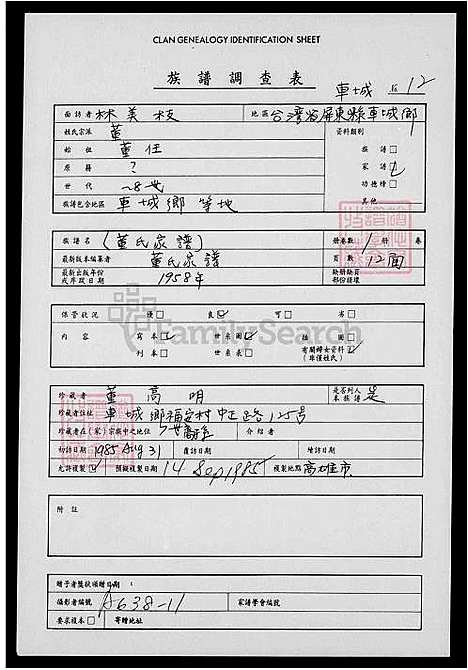 CLAN GENEALOGY IDENTIFICATION SHEET
族譜調查表
車城 12
面訪者 林美枝 地區 台灣省屏東縣車城鄉
姓氏宗派 董 資料類別
始祖 董任 族譜
原籍 ? 家譜 ✓
世代 ~8世 功德榜
族譜包含地區 車城鄉等地 其他
族譜名 (董氏家譜) 冊卷數 1冊 卷
最新版本編纂者 董氏家譜 頁數 12面
最新出版年份 1958年 缺冊缺頁
或序跋日期 部份績壞
保管狀況 優 良 ✓ 可 劣
內容 寫本 ✓ 世系圖 ✓ 插圖
刊本 世系表 有關婦女資料 ✓
(非僅姓氏)
珍藏者 董高明 是否列入本族譜 是
珍藏者住址 車城鄉福安村中正路125号
珍藏者在(家)宗族中之地位 介紹者
初訪日期 1985 Aug 31 復訪日期 續訪日期
允許複製 ✓ 預擬複製日期 14 Sep 1985 複製地點 高雄市
附註
贈予者獎狀頒贈日期:
攝影者編號 A638-11 家譜學會編號
要求複本 寄贈地址
FamilySearch